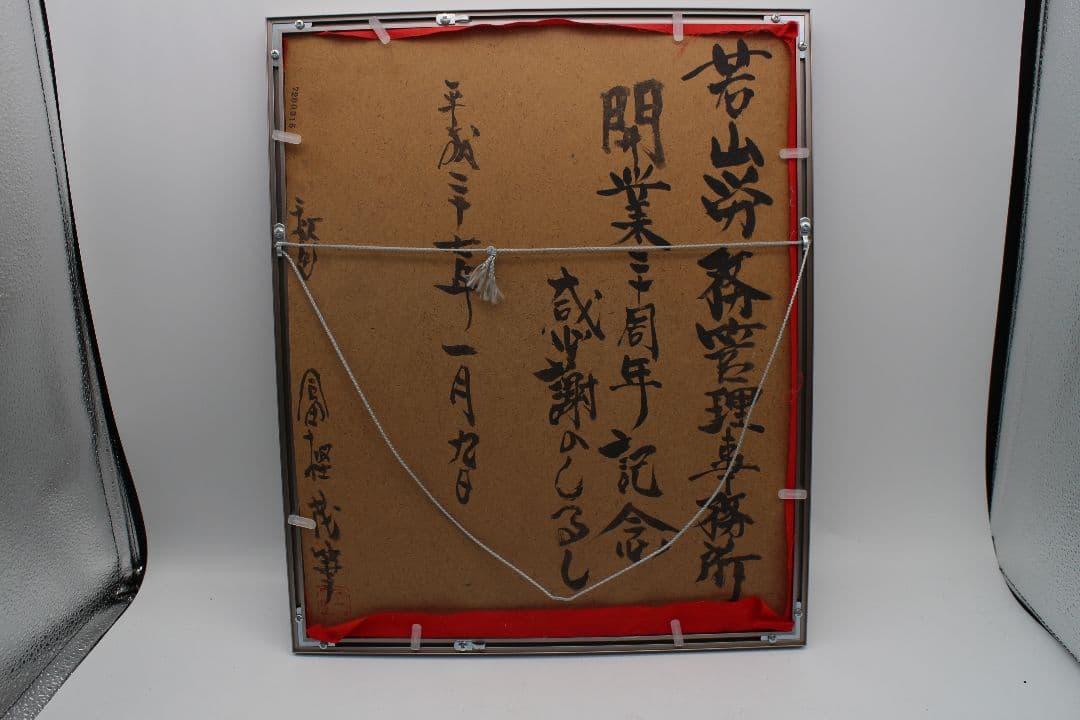 若山労務管理事務所
開業三十周年記念
感謝のしるし
平成二十七年一月九日
茂筆